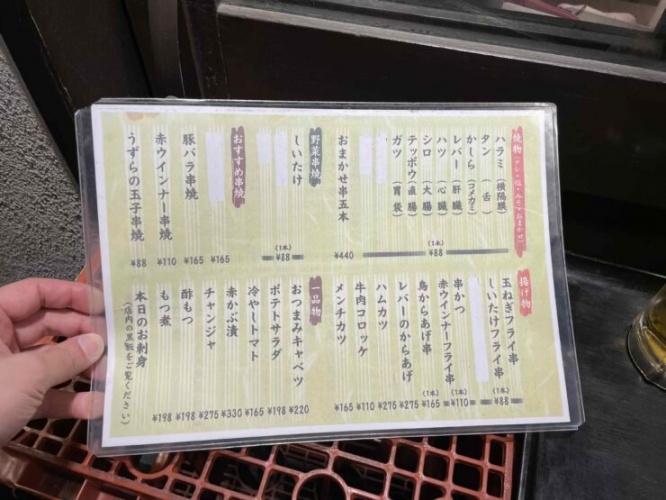 焼物
ハラミ（横隔膜）
タン（舌）
かしら（コメカミ）
レバー（肝臓）
ハツ（心臓）
シロ（大腸）
テッポウ（直腸）
ガツ（胃袋）
（1本）
¥88
おまかせ串五本
¥440
野菜串焼
しいたけ
（1本）
¥88
おすすめ串焼
¥165
豚バラ串焼
¥165
赤ウインナー串焼
¥110
うずらの玉子串焼
¥88
揚げ物
玉ねぎフライ串
しいたけフライ串
（1本）
¥88
串かつ
赤ウインナーフライ串
（1本）
¥110
鳥からあげ串
（1本）
¥165
レバーのからあげ
¥275
ハムカツ
¥275
牛肉コロッケ
¥110
メンチカツ
¥165
一品物
おつまみキャベツ
¥220
ポテトサラダ
¥198
冷やしトマト
¥165
赤かぶ漬
¥330
チャンジャ
¥275
酢もつ
¥198
もつ煮
¥198
本日のお刺身
（店内の黒板をご覧ください）